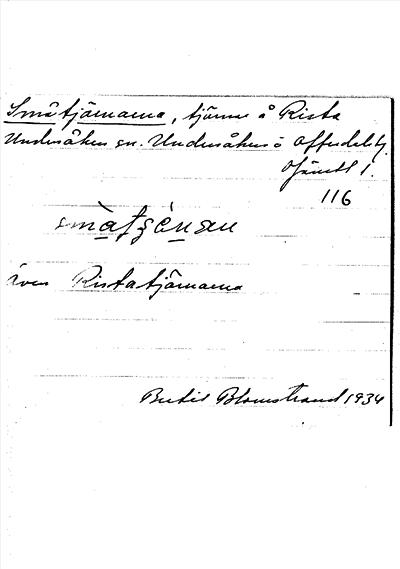 Småtjärnarna, tjärnar å Rista
Undersåkers sn. Undersåkers o Offerdals tg.
Jämtl l.
116
smàtʂæ̀nan
även Ristatjärnarna
Bertil Blomstrand 1934